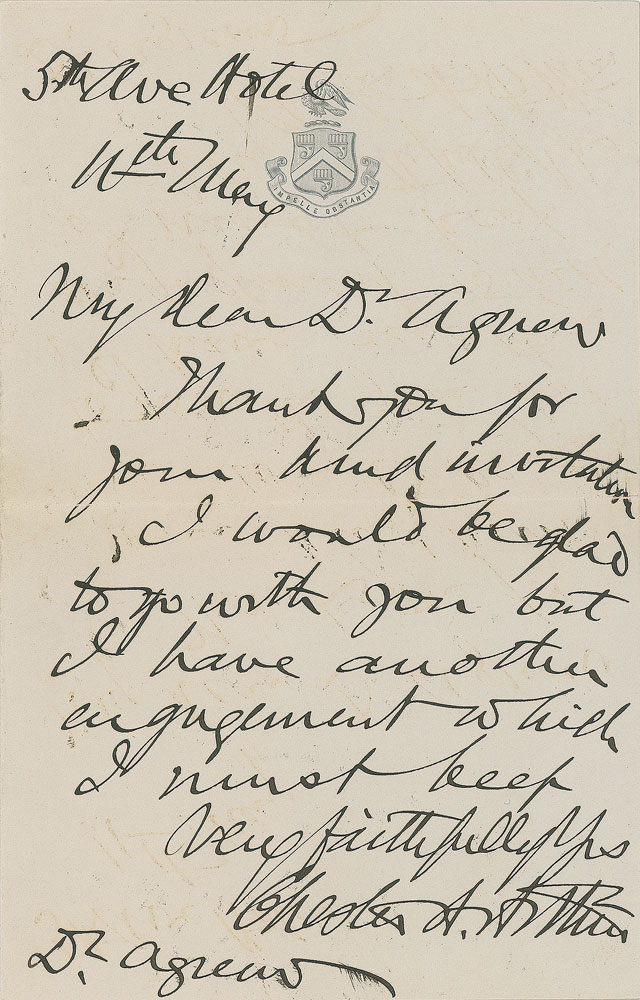 5th Ave Hotel
11th May
IMPELLE OBSTANTIA
My dear Dr. Agnew
Thank you for
your kind invitation
I would be glad
to go with you but
I have another
engagement which
I must keep
Very faithfully Yrs
Chester A. Arthur
Dr. Agnew